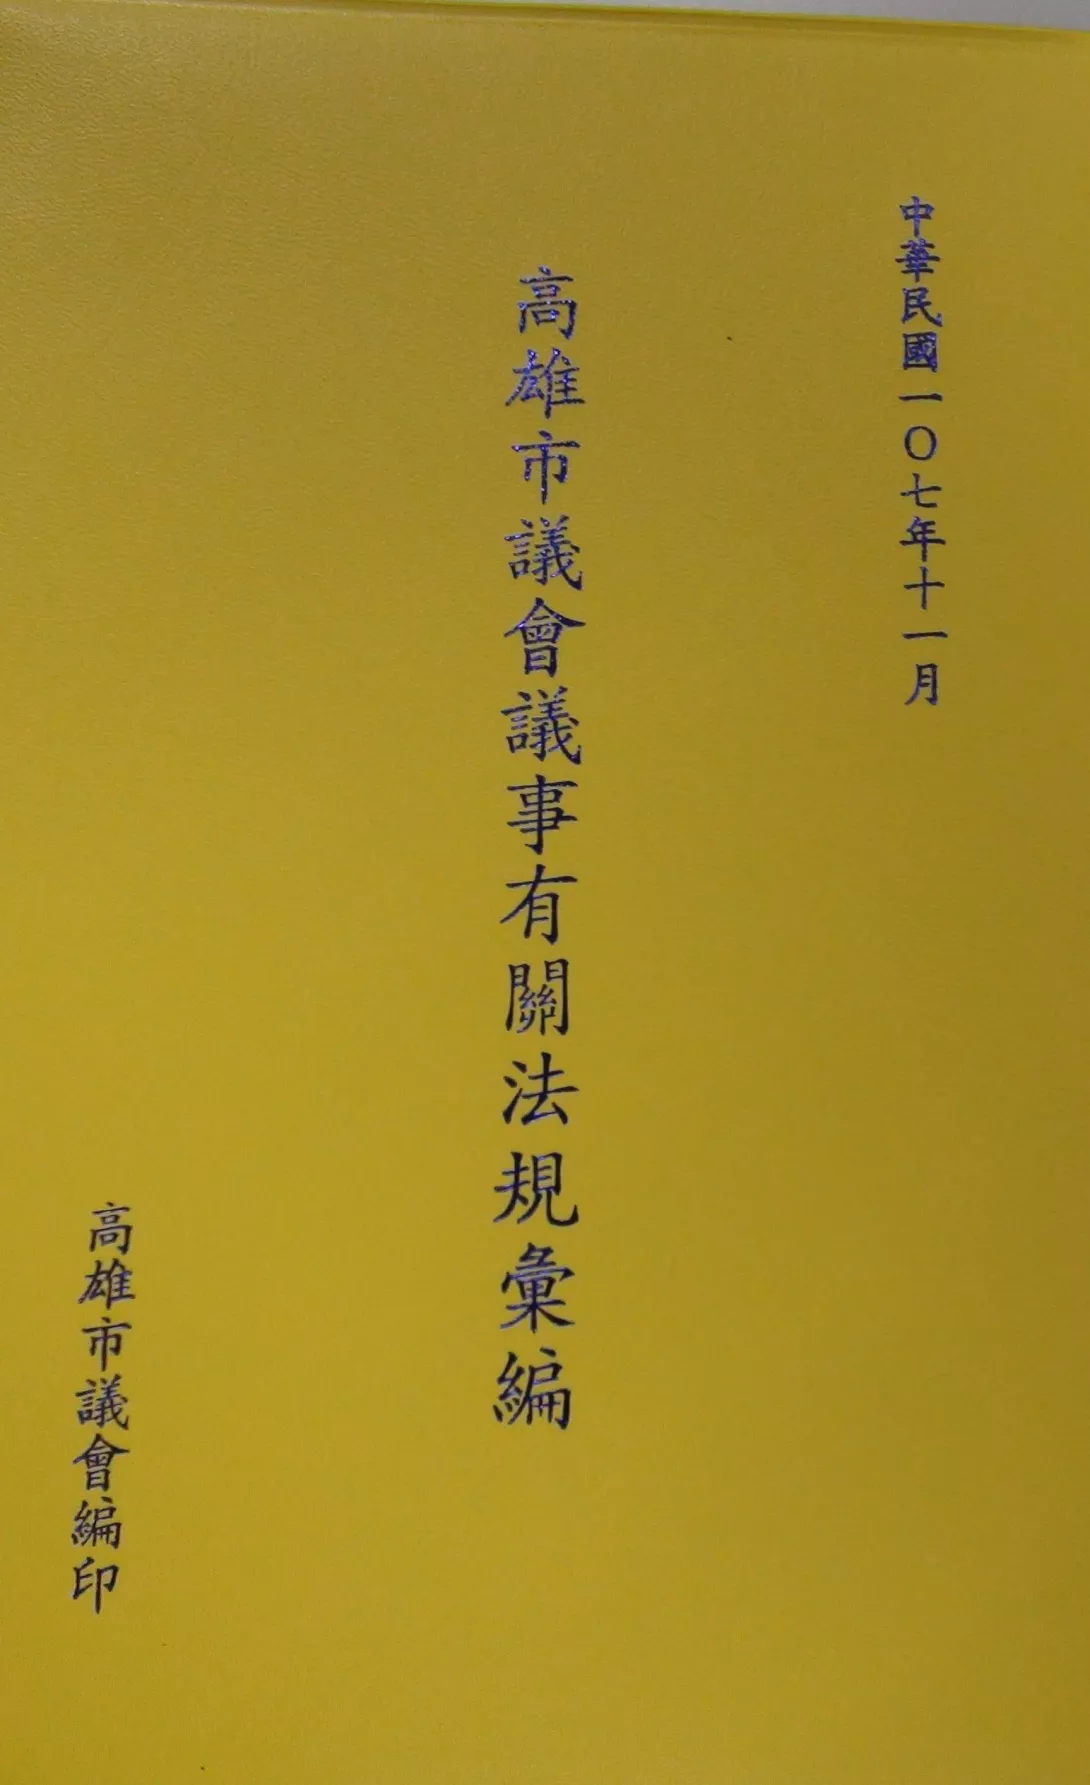 中華民國一〇七年十一月
高雄市議會議事有關法規彙編
高雄市議會編印